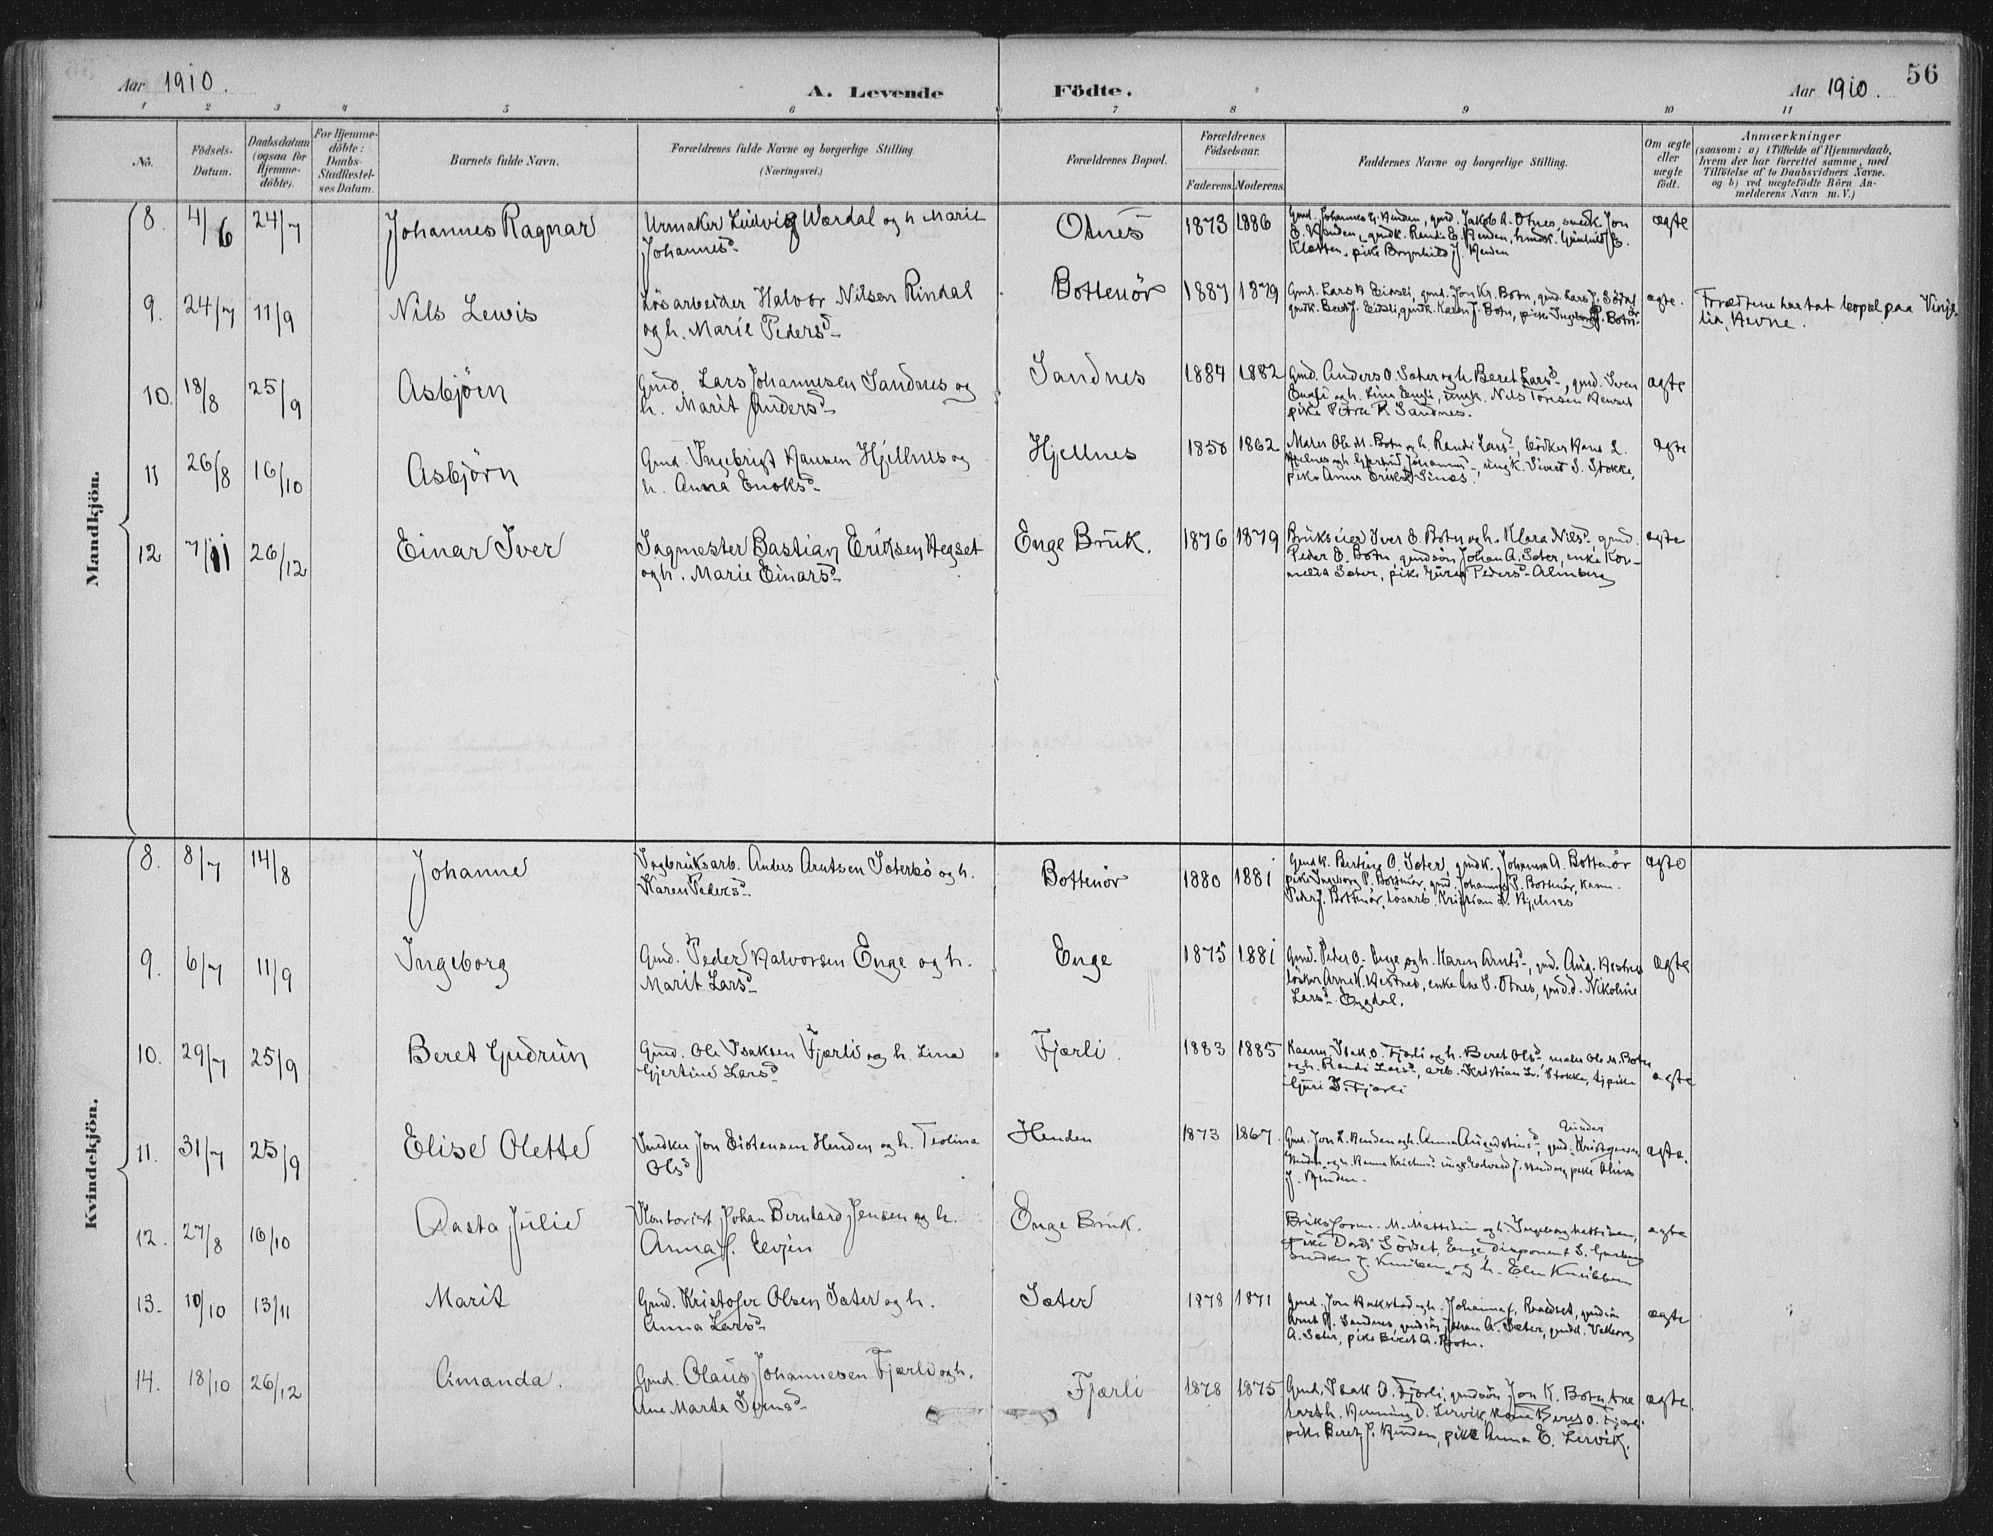 56
Aar 1910.
A. Levende Födte.
Aar 1910.
1 2 3 4 5 6 7 8 9 10 11
Nö.
Födsels-
Datum.
Daabsdatum
(ogsaa for
Hjemme-
döbte).
For Hjemme-
döbte:
Daabs-
Stadfæstel-
ses Datum.
Barnets fulde Navn.
Forældrenes fulde Navne og borgerlige Stilling.
(Næringsvei.)
Forældrenes Bopæl.
Forældrenes
Födselsaar.
Faderens. Moderens.
Faddernes Navne og borgerlige Stilling.
Om ægte
eller
uægte
födt.
Anmærkninger
(saasom: a) i Tilfælde af Hjemmedaab,
hvem der har forrettet samme, med
Tilföielse af to Daabsvidners Navne,
og b) ved uægtefödte Börn An-
melderens Navn m.V.)
Mandkjön.
8. 4/6 24/7 Johannes Ragnar Urmaker Ludvig Wærdal og h. Marit
Johannesd.
Otnes 1873 1886 ægte
9. 24/7 11/9 Nils Lewis Lösarbeider Halvor Nilsen Rindal
og h. Marie Pedersd.
Bottenör 1887 1879 Gmd. Lars
gmdk. Beret J. Eidsli, gmdk. Karen J. Botn, pike Ingeborg P. Botn.
ægte. Foreldrene har tat bopæl paa
lia, Hevne.
10. 18/8 25/9 Asbjörn Gmd. Lars Johannesen Sandnes og
h. Marit Andersd.
Sandnes 1884 1882 Gmd. Anders O. Sæter og h. Beret Larsd., gmd. Sven
Engli og h. Lina Engli, ungk. Nils Tonsen
pike Petra R. Sandnes.
ægte
11 26/8 16/10 Asbjörn Gmd. Ingebrigt Hansen Hjellnes og
h. Anna Enoksd.
Hjellnes 1850 1862 Maler Ole M. Botn og h. Randi Larsd., bödker Hans L.
Hjellnes og h. ungk. Sivert S. Stokke,
pike Anna
ægte
12 7/11 26/12 Einar Iver Sagmester Bastian Eriksen Hegset
og h. Marie Einarsd.
Enge Bruk. 1876 1879 Brukseier Iver E. Botn og h. Klara Nilsd., gmd.
Peder E. Botn, gmdsön Johan A. Sæter, enke Kor-
nelia Sæter, pike Guro Pedersd. Almberg
ægte
Kvindekjön.
8. 8/7 14/8 Johanne Sagbruksarb. Anders Arntsen Sæterbö og h.
Karen Pedersd.
Bottenör 1880 1881 Gmdk. Bertine O. Sæter, gmdk. Johanna A. Bottenör
pike Ingeborg P. Bottenör, gmd. Johannes P. Bottenör, kaarm.
Peder J. Bottenör, lösarb. Kristian L. Hjelnes
ægte
9. 6/7 11/9 Ingeborg Gmd. Peder Halvorsen Enge og h.
Marit Larsd.
Enge 1875 1881 Gmd. Peter O. Enge og h. Karen Arntsd., gmd. Aug. Hestnes
löskar Arne K. Hestnes, enke Ane S. Otnes, gmd.d. Nikoline
Larsd. Engdal.
ægte
10. 29/7 25/9 Beret Gudrun Gmd. Ole Isaksen Fjærli og h. Lina
Gjertine Larsd.
Fjærli. 1883 1885 Kaarm. Isak O. Fjærli og h. Beret Olsd., maler Ole M. Botn
og h. Randi Larsd., arb. Kristian L. Stokke, tj.pike
Guri I. Fjærli
ægte
11. 31/7 25/9 Elise Olette Snedker Jon Eistensen Henden og h. Teolina
Olsd.
Henden 1873 1867. Gmd. Jon L. Henden og h. Anna Augustinusd., gmd.
Henden og h. Hanna ungk. Edvard J. Henden, pike
J. Henden.
ægte.
12. 27/8 16/10 Aasta Julie Kontorist Johan Bernhard Jensen og h.
Anna f. Evjen
Enge Bruk. Bruksform. M. Mattisen og h. Ingeborg Mattisen,
pike Dordi Söiset, Enge, disponent S.
snedker J. og h. Elen
ægte
13. 10/10 13/11 Marit Gmd. Kristofer Olsen Sæter og h.
Anna Larsd.
Sæter 1878 1871 Gmd. Jon Bakstad og h. Johanna f. gmdsön
Arnt R. Sandnes, gmdsön Johan A. Sæter, gmdd. Valborg
A. Sæter, pike Beret A. Botn.
ægte
14. 18/10 26/12 Amanda. Gmd. Olaus Johannesen Fjærli og h.
Ane Marta Svensd.
Fjærli 1878 1875 Gmd. Isak O. Fjærli, gmdsön Jon K. Botn,
Henning O. Lervik, kone Beret O. Fjærli
pike Beret J. Henden, pike Anna E. Lervik.
ægte.